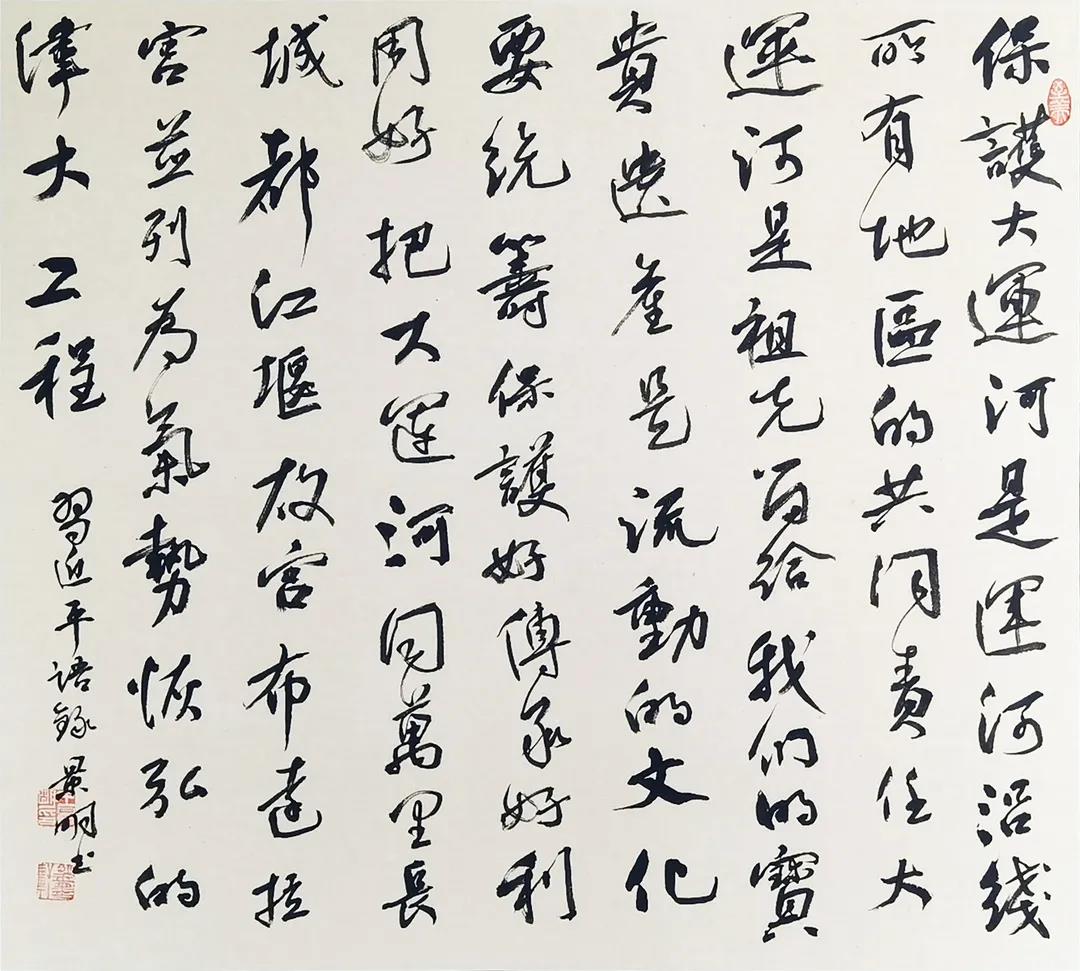 保護大運河是運河沿綫
所有地區的共同責任大
運河是祖先留給我们的寶
貴遺産是流動的文化
要統籌保護好傳承好利
用好把大運河同萬里長
城都江堰故宮布達拉
宮並列為氣勢恢弘的
偉大工程
習近平語錄 景明书